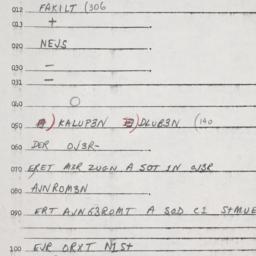 012 FAKILT (306
013 +
020 NEJS
030 –
031 –
040 O
050 A) KALUP3N B) DLUR3N (140
060 DER OJ3R-
070 ERET M2R ZUGN A SOT IN OJ3R
080 AJNROM3N
090 ERT AJNG3ROMT A SOD CI
100 EJR ORXT NIST